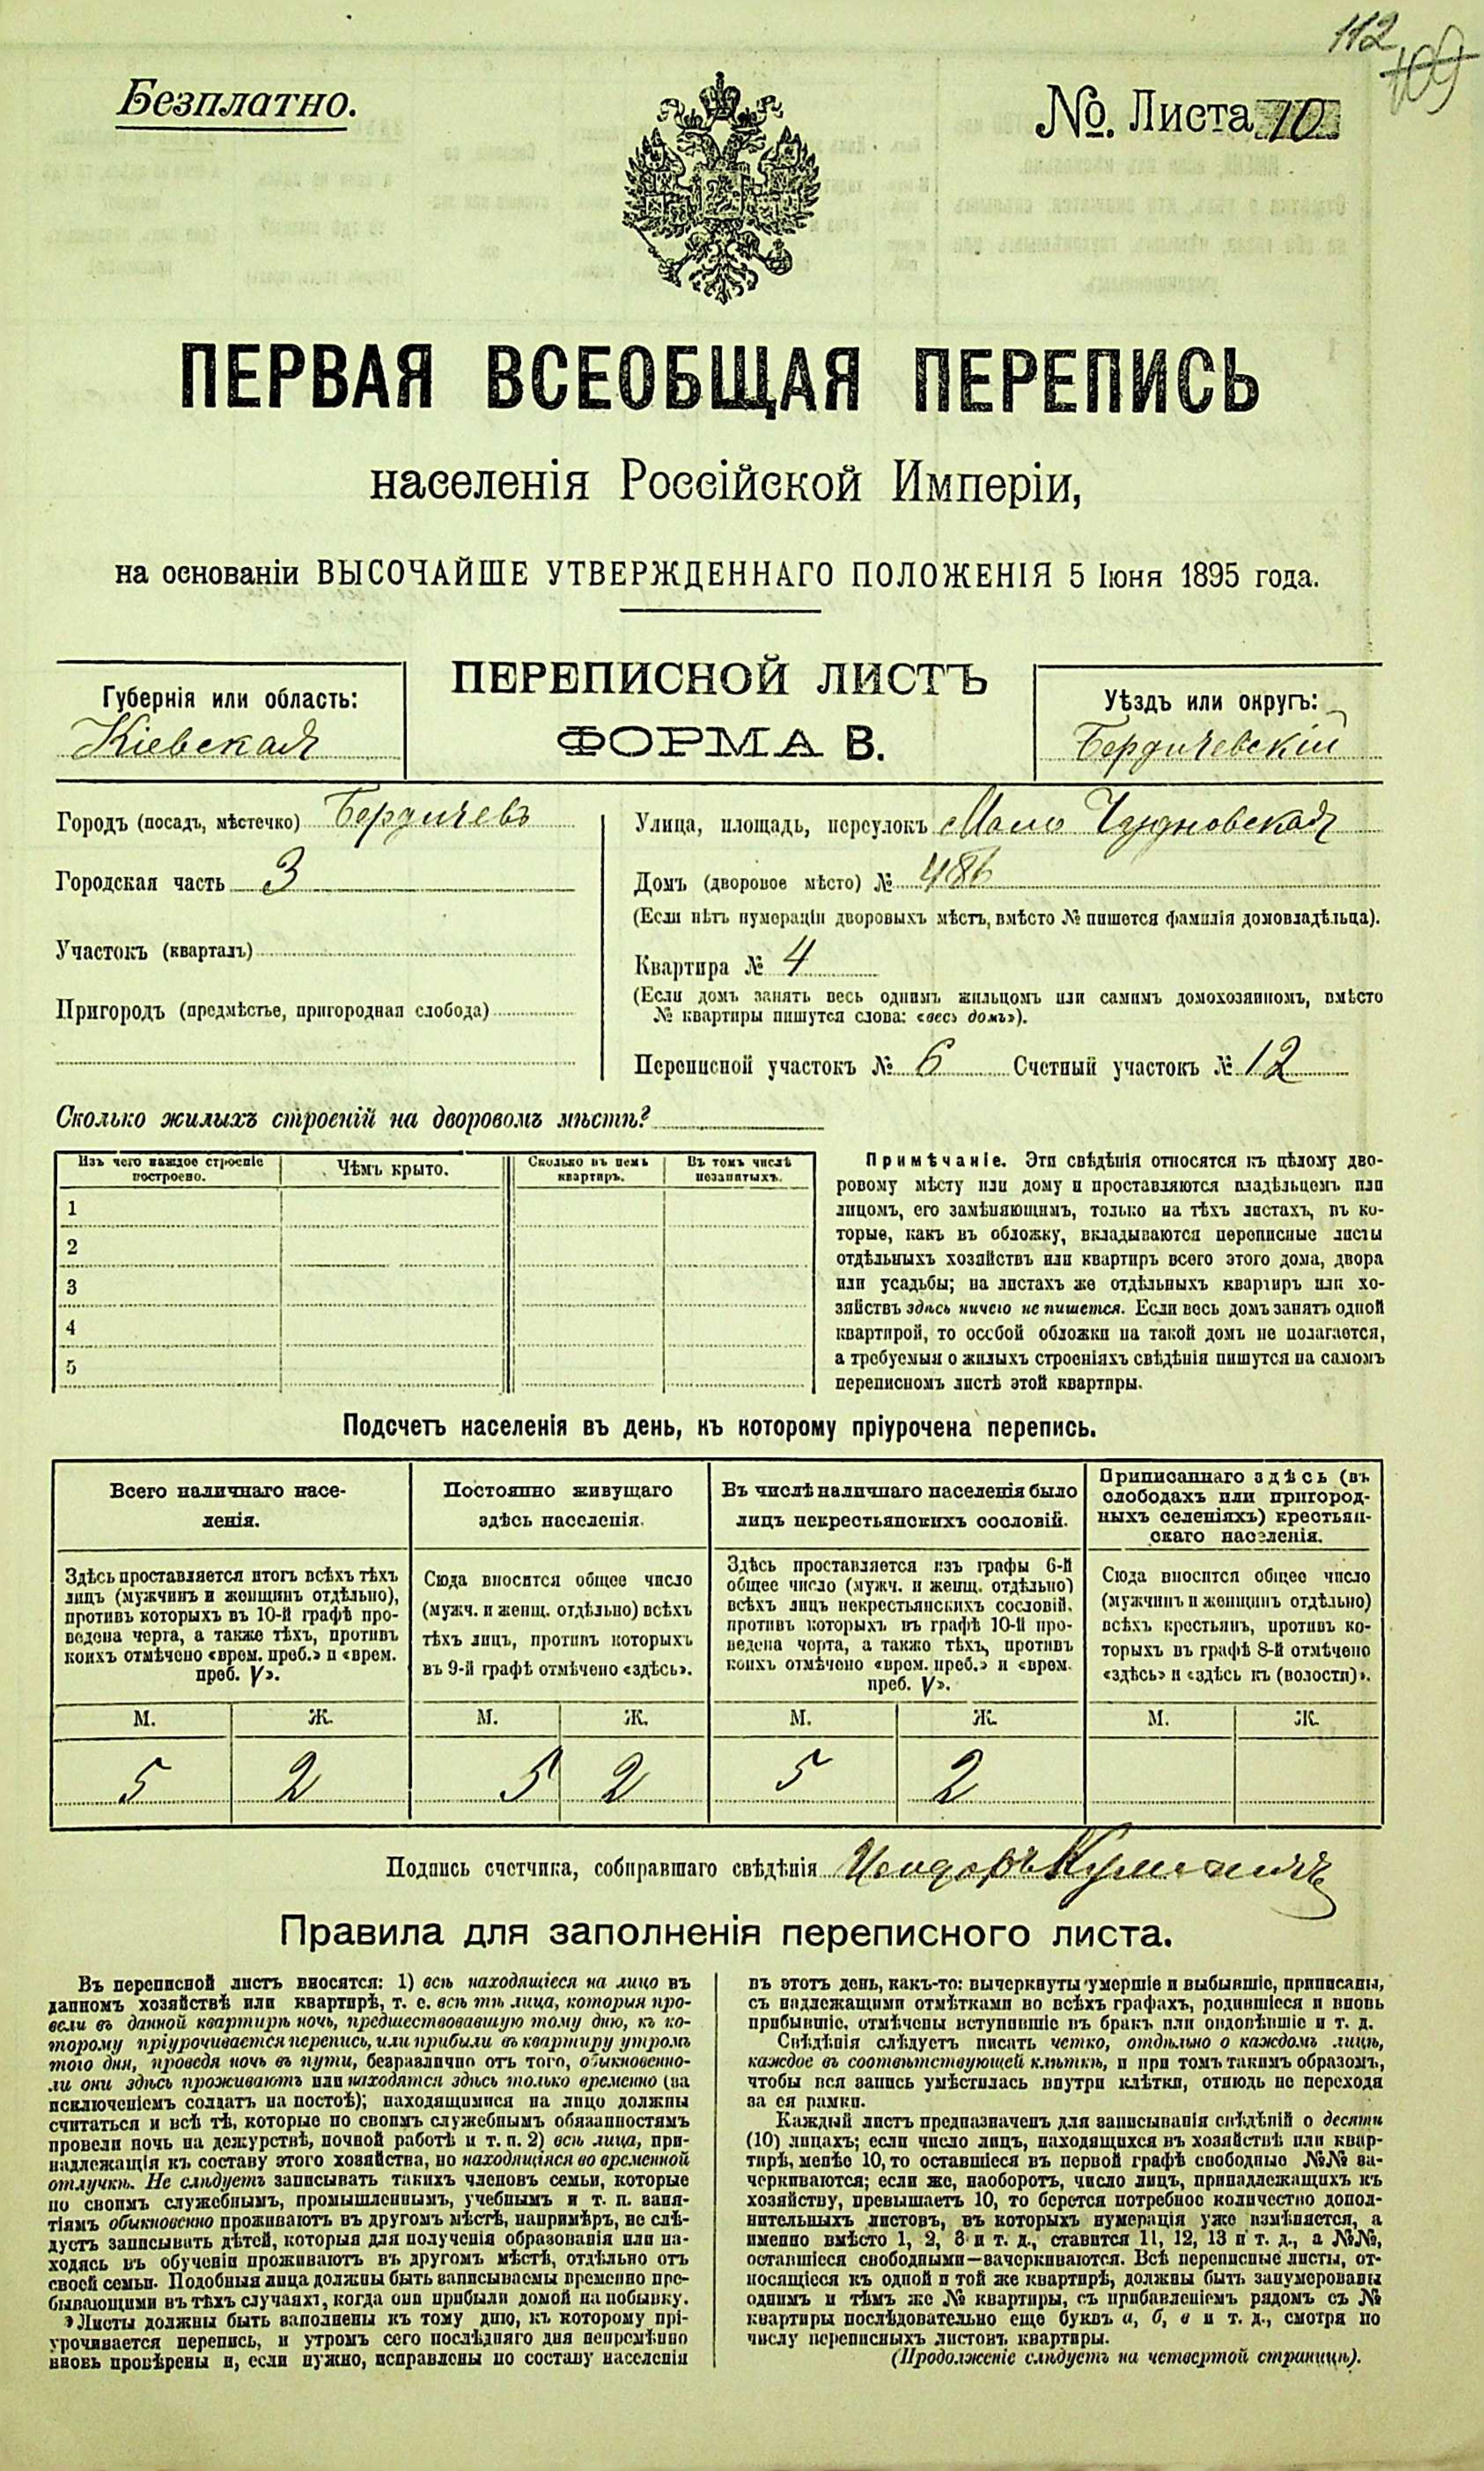 112
109
Безплатно.
№. Листа 10
ПЕРВАЯ ВСЕОБЩАЯ ПЕРЕПИСЬ
населенія Россійской Имперіи,
на основаніи ВЫСОЧАЙШЕ УТВЕРЖДЕННАГО ПОЛОЖЕНІЯ 5 Іюня 1895 года.
ПЕРЕПИСНОЙ ЛИСТЪ
ФОРМА В.
Губернія или область:
Кіевская
Уѣздъ или округъ:
Бердичевскій
Городъ (посадъ, мѣстечко) Бердичевъ
Городская часть 3
Участокъ (кварталъ)
Пригородъ (предмѣстье, пригородная слобода)
Улица, площадь, переулокъ Мало Чудновская
Домъ (дворовое мѣсто) № 486
(Если нѣтъ нумераціи дворовыхъ мѣстъ, вмѣсто № пишется фамилія домовладѣльца).
Квартира № 4
(Если домъ занятъ весь однимъ жильцомъ или самимъ домохозяиномъ, вмѣсто
№ квартиры пишутся слова: «весь домъ»).
Переписной участокъ № 6 Счетный участокъ № 12
Сколько жилыхъ строеній на дворовомъ мѣстѣ?
Изъ чего каждое строеніе
построено.
Чѣмъ крыто.
Сколько въ немъ
квартиръ.
Въ томъ числѣ
незанятыхъ.
1
2
3
4
5
Примѣчаніе. Эти свѣдѣнія относятся къ цѣлому дво-
ровому мѣсту или дому и проставляются владѣльцемъ или
лицомъ, его замѣняющимъ, только на тѣхъ листахъ, въ ко-
торые, какъ въ обложку, вкладываются переписные листы
отдѣльныхъ хозяйствъ или квартиръ всего этого дома, двора
или усадьбы; на листахъ же отдѣльныхъ квартиръ или хо-
зяйствъ здѣсь ничего не пишется. Если весь домъ занятъ одной
квартирой, то особой обложки на такой домъ не полагается,
а требуемыя о жилыхъ строеніяхъ свѣдѣнія пишутся на самомъ
переписномъ листѣ этой квартиры.
Подсчетъ населенія въ день, къ которому пріурочена перепись.
Всего наличнаго насе-
ленія.
Здѣсь проставляется итогъ всѣхъ тѣхъ
лицъ (мужчинъ и женщинъ отдѣльно),
противъ которыхъ въ 10-й графѣ про-
ведена черта, а также тѣхъ, противъ
коихъ отмѣчено «врем. преб.» и «врем.
преб. V».
Постоянно живущаго
здѣсь населенія.
Сюда вносится общее число
(мужч. и женщ. отдѣльно) всѣхъ
тѣхъ лицъ, противъ которыхъ
въ 9-й графѣ отмѣчено «здѣсь».
Въ числѣ наличнаго населенія было
лицъ некрестьянскихъ сословій.
Здѣсь проставляется изъ графы 6-й
общее число (мужч. и женщ. отдѣльно)
всѣхъ лицъ некрестьянскихъ сословій,
противъ которыхъ въ графѣ 10-й про-
ведена черта, а также тѣхъ, противъ
коихъ отмѣчено «врем. преб.» и «врем.
преб. V».
Приписаннаго здѣсь (въ
слободахъ или пригород-
ныхъ селеніяхъ) крестьян-
скаго населенія.
Сюда вносится общее число
(мужчинъ и женщинъ отдѣльно)
всѣхъ крестьянъ, противъ ко-
торыхъ въ графѣ 8-й отмѣчено
«здѣсь» и «здѣсь къ (волости)».
М. Ж. М. Ж. М. Ж. М. Ж.
5 2 5 2 5 2
Подпись счетчика, собиравшаго свѣдѣнія Исидоръ
Правила для заполненія переписного листа.
Въ переписной листъ вносятся: 1) всѣ находящіеся на лицо въ
данномъ хозяйствѣ или квартирѣ, т. е. всѣ тѣ лица, которыя про-
вели въ данной квартирѣ ночь, предшествовавшую тому дню, къ ко-
торому пріурочивается перепись, или прибыли въ квартиру утромъ
того дня, проведя ночь въ пути, безразлично отъ того, обыкновенно-
ли они здѣсь проживаютъ или находятся здѣсь только временно (за
исключеніемъ солдатъ на постоѣ); находящимися на лицо должны
считаться и всѣ тѣ, которые по своимъ служебнымъ обязанностямъ
провели ночь на дежурствѣ, ночной работѣ и т. п. 2) всѣ лица, при-
надлежащія къ составу этого хозяйства, но находящіяся во временной
отлучкѣ. Не слѣдуетъ записывать такихъ членовъ семьи, которые
по своимъ служебнымъ, промышленнымъ, учебнымъ и т. п. заня-
тіямъ обыкновенно проживаютъ въ другомъ мѣстѣ, напримѣръ, не слѣ-
дуетъ записывать дѣтей, которыя для полученія образованія или на-
ходясь въ обученіи проживаютъ въ другомъ мѣстѣ, отдѣльно отъ
своей семьи. Подобныя лица должны быть записываемы временно пре-
бывающими въ тѣхъ случаяхъ, когда они прибыли домой на побывку.
Листы должны быть заполнены къ тому дню, къ которому прі-
урочивается перепись, и утромъ сего послѣдняго дня непремѣнно
вновь провѣрены и, если нужно, исправлены по составу населенія
въ этотъ день, какъ-то: вычеркнуты умершіе и выбывшіе, приписаны,
съ надлежащими отмѣтками во всѣхъ графахъ, родившіеся и вновь
прибывшіе, отмѣчены вступившіе въ бракъ или овдовѣвшіе и т. д.
Свѣдѣнія слѣдуетъ писать четко, отдѣльно о каждомъ лицѣ,
каждое въ соотвѣтствующей клѣткѣ, и при томъ такимъ образомъ,
чтобы вся запись умѣстилась внутри клѣтки, отнюдь не переходя
за ея рамки.
Каждый листъ предназначенъ для записыванія свѣдѣній о десяти
(10) лицахъ; если число лицъ, находящихся въ хозяйствѣ или квар-
тирѣ, менѣе 10, то оставшіеся въ первой графѣ свободные №№ за-
черкиваются; если же, наоборотъ, число лицъ, принадлежащихъ къ
хозяйству, превышаетъ 10, то берется потребное количество допол-
нительныхъ листовъ, въ которыхъ нумерація уже измѣняется, а
именно вмѣсто 1, 2, 3 и т. д., ставится 11, 12, 13 и т. д., а №№,
оставшіеся свободными—зачеркиваются. Всѣ переписные листы, от-
носящіеся къ одной и той же квартирѣ, должны быть занумерованы
однимъ и тѣмъ же № квартиры, съ прибавленіемъ рядомъ съ №
квартиры послѣдовательно еще буквъ а, б, в и т. д., смотря по
числу переписныхъ листовъ квартиры.
(Продолженіе слѣдуетъ на четвертой страницѣ).